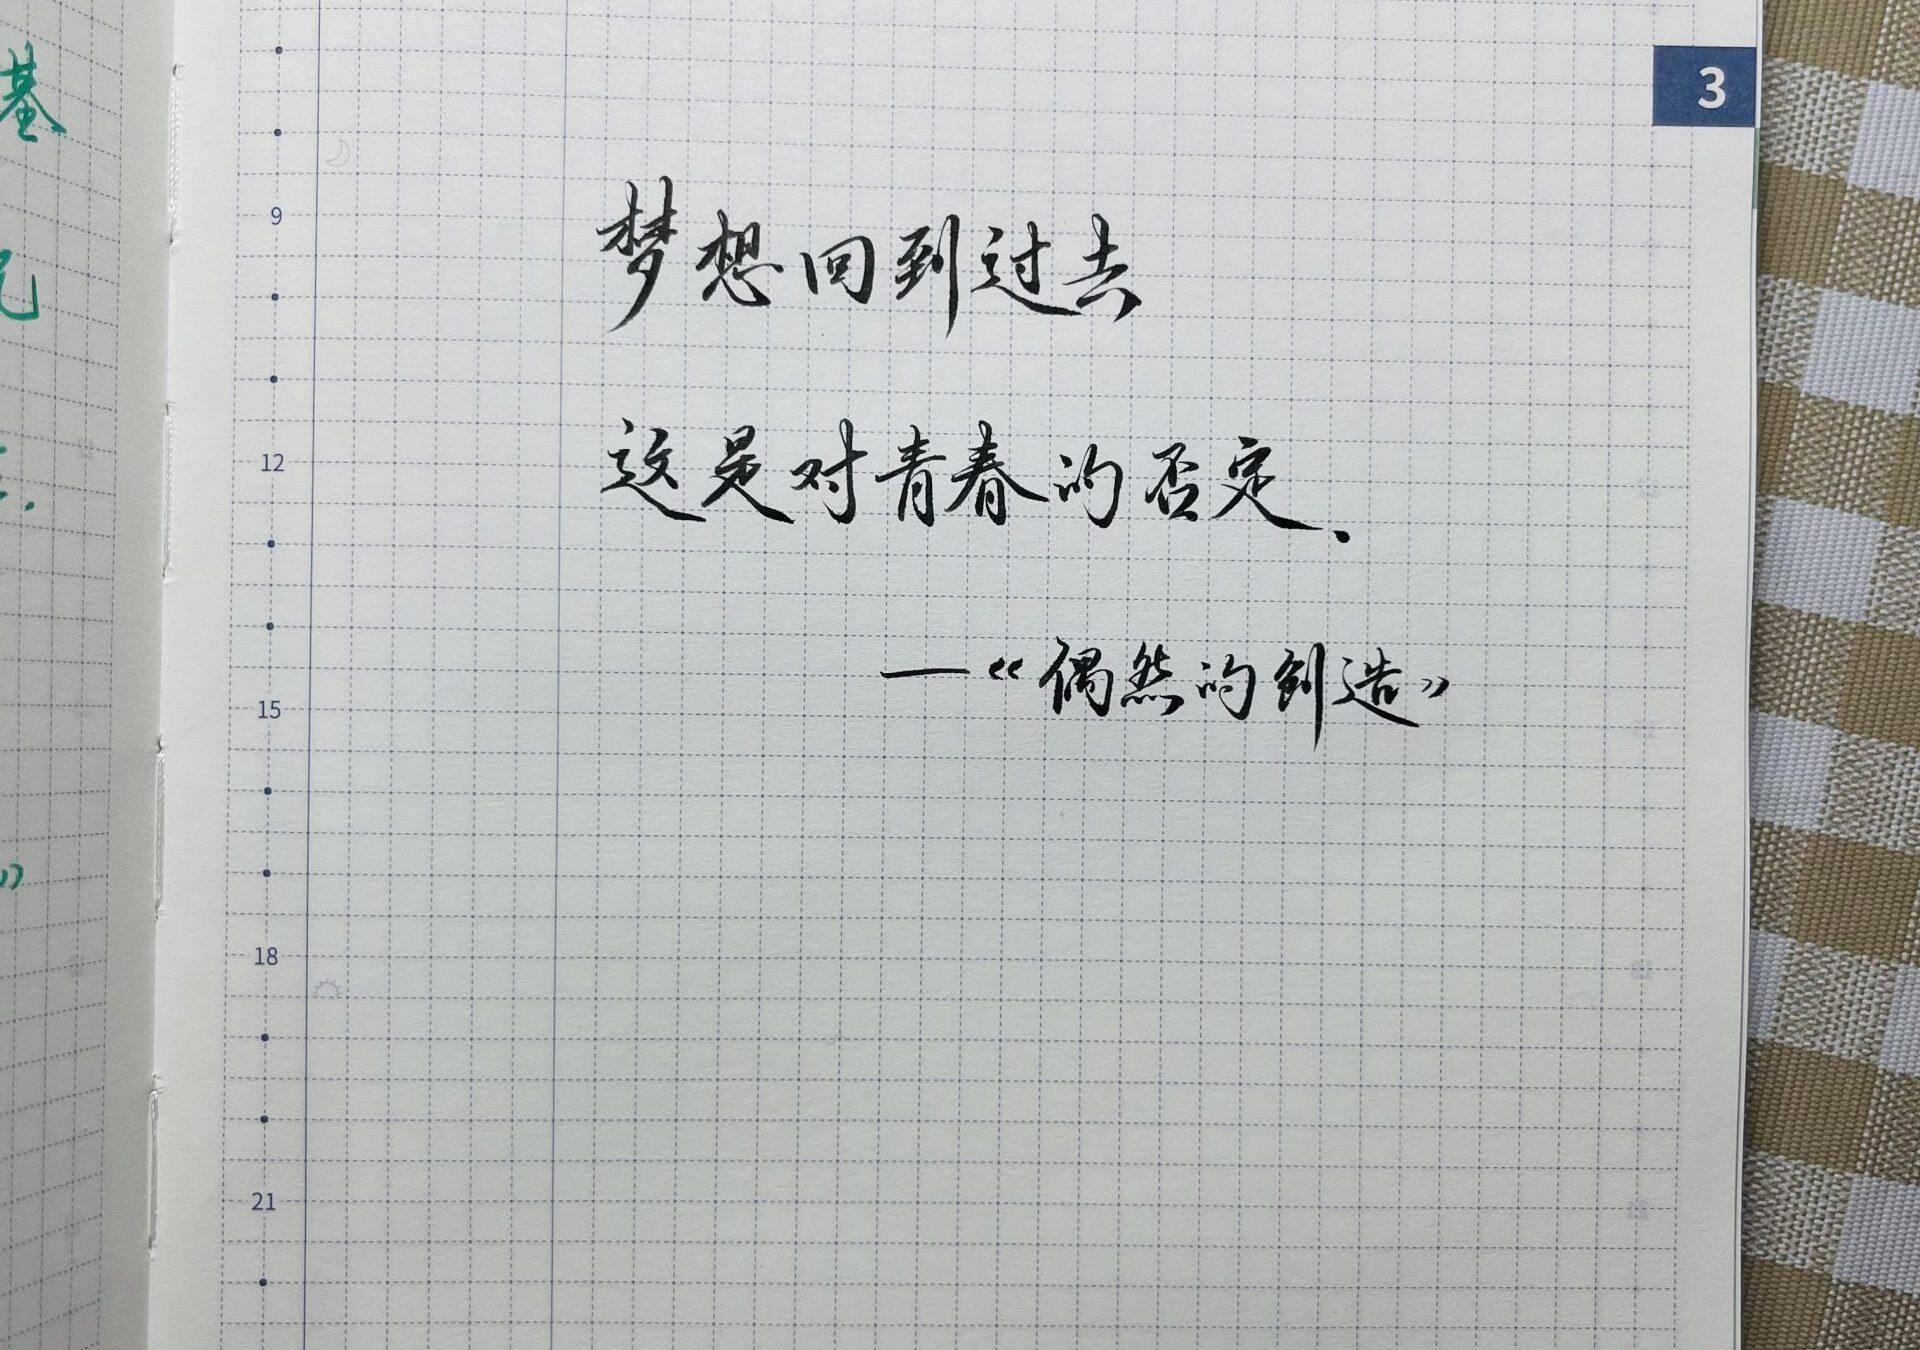 基
3
9
梦想回到过去
12
这是对青春的否定.
—《偶然的创造》
15
》
18
21